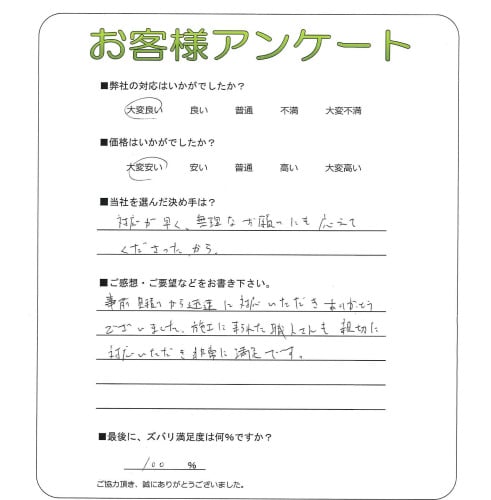 お客様アンケート
■弊社の対応はいかがでしたか？
大変良い 良い 普通 不満 大変不満
■価格はいかがでしたか？
大変安い 安い 普通 高い 大変高い
■当社を選んだ決め手は？
対応が早く、無理なお願いにも応えて
くださったから。
■ご感想・ご要望などをお書き下さい。
事前見積りから迅速に対応いただきありがとう
ございました。施工に来られた職人さんも親切に
対応いただき非常に満足です。
■最後に、ズバリ満足度は何%ですか？
100 %
ご協力頂き、誠にありがとうございました。